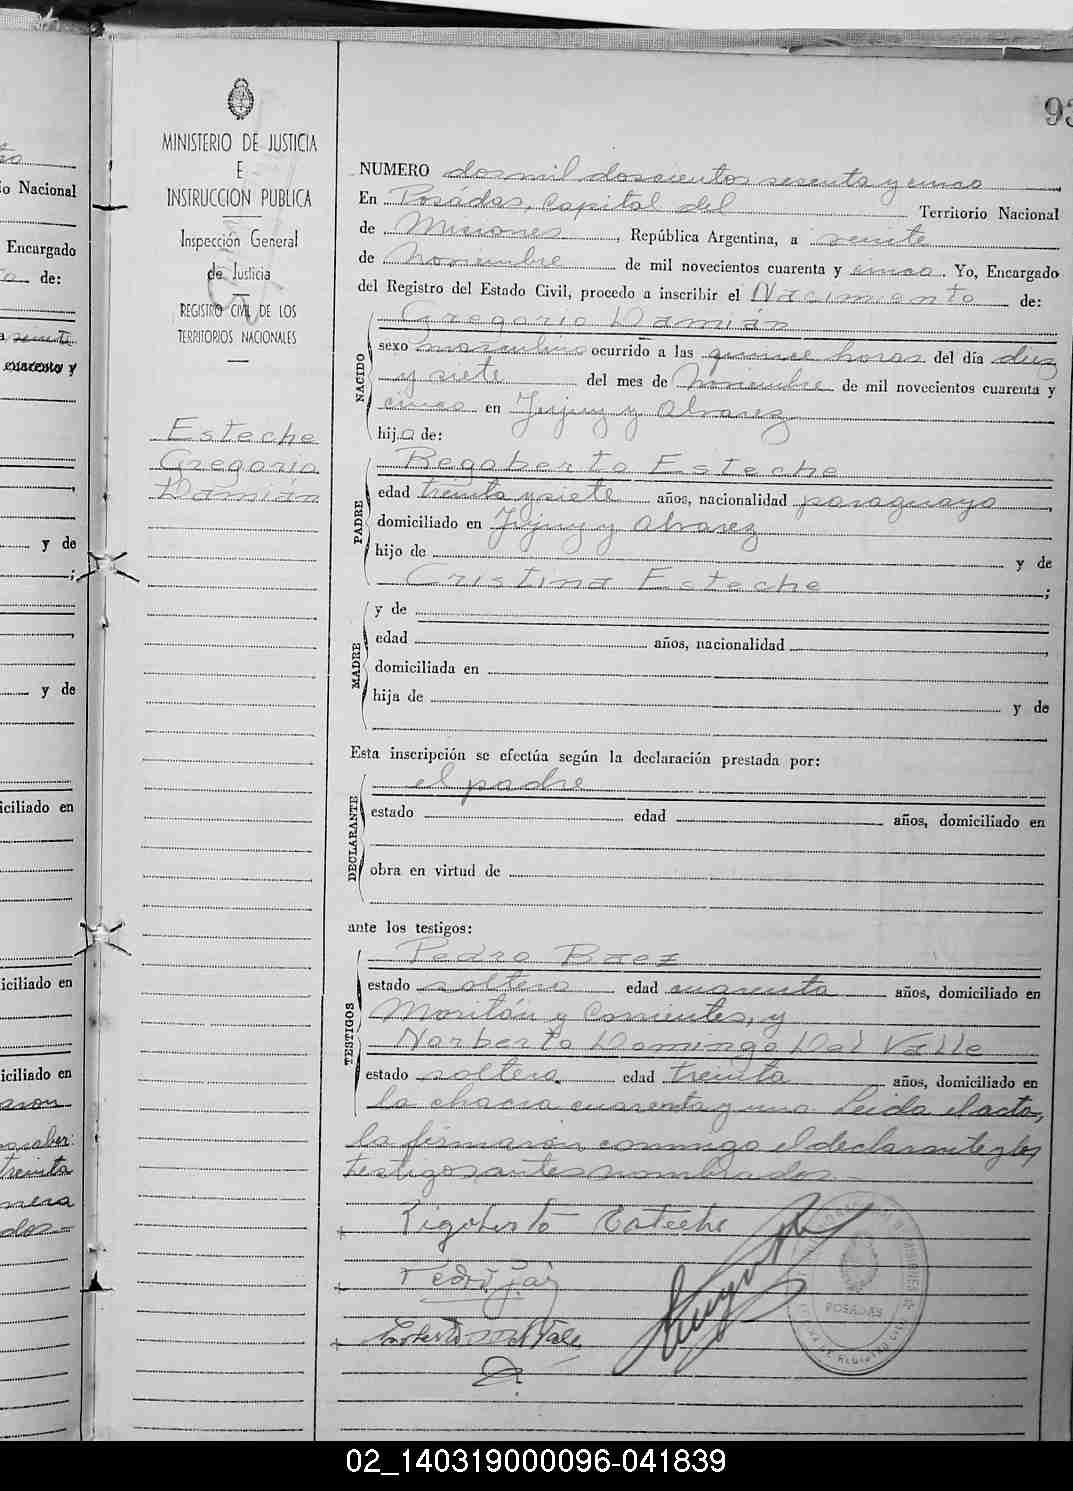 93
MINISTERIO DE JUSTICIA
E
INSTRUCCION PUBLICA
Inspección General
de Justicia
REGISTRO CIVIL DE LOS
TERRITORIOS NACIONALES
Esteche
Gregorio
Damián
NUMERO dosmil doscientos sesenta y cinco
En Posádas, Capital del Territorio Nacional
de Misiones, República Argentina, a veinte
de Noviembre de mil novecientos cuarenta y cinco. Yo, Encargado
del Registro del Estado Civil, procedo a inscribir el Nacimiento de:
NACIDO
Gregorio Damián
sexo masculino ocurrido a las quince horas del día diez
y siete del mes de Noviembre de mil novecientos cuarenta y
cinco en Jujuy y Alvarez
hijo de:
PADRE
Regoberto Esteche
edad treinta y siete años, nacionalidad paraguaya,
domiciliado en Jujuy y Alvarez
hijo de y de
Cristina Esteche ;
MADRE
y de
edad años, nacionalidad ,
domiciliada en
hija de y de
Esta inscripción se efectúa según la declaración prestada por:
DECLARANTE
el padre
estado edad años, domiciliado en
obra en virtud de
ante los testigos:
TESTIGOS
Pedro Baez
estado soltero edad cuarenta años, domiciliado en
Moritán y Corrientes, y
Norberto Domingo Del Valle
estado soltero. edad treinta años, domiciliado en
la chacra cuarenta y una. Leida el acta,
la firmaron conmigo el declarante y los
testigos antes nombrados
Rigoberto Esteche
POSADAS
io Nacional
Encargado
de:
cuarenta y
y de
;
y de
iciliado en
iciliado en
iciliado en
treinta
02_140319000096-041839